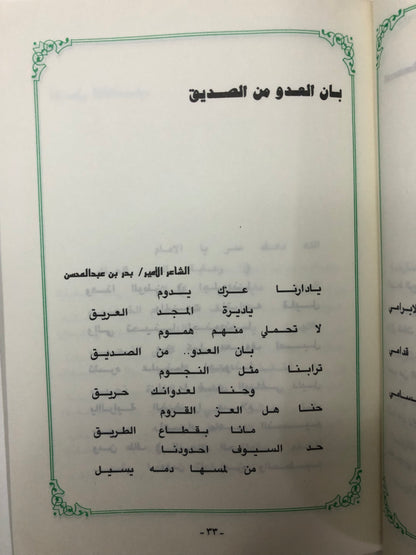 بان العدو من الصديق
الشاعر الأمير/ بدر بن عبدالمحسن
يادارنا عزك يدوم
ياديرة المجد العريق
لا تحملي منهم هموم
بان العدو.. من الصديق
ترابنا مثل النجوم
وحنا لعدوانك حريق
حنا هل العز القروم
مانا بقطاع الطريق
حد السيوف احدودنا
من لمسها دمه يسيل
- ٣٣ -
لابرامي
قدامي